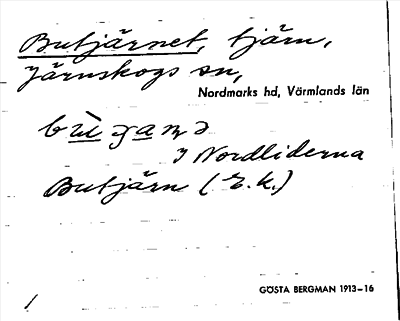 Butjärnet, tjärn,
Järnskogs sn,
Nordmarks hd, Värmlands län
I Nordliderna
Butjärn (E.k.)
GÖSTA BERGMAN 1913–16
/